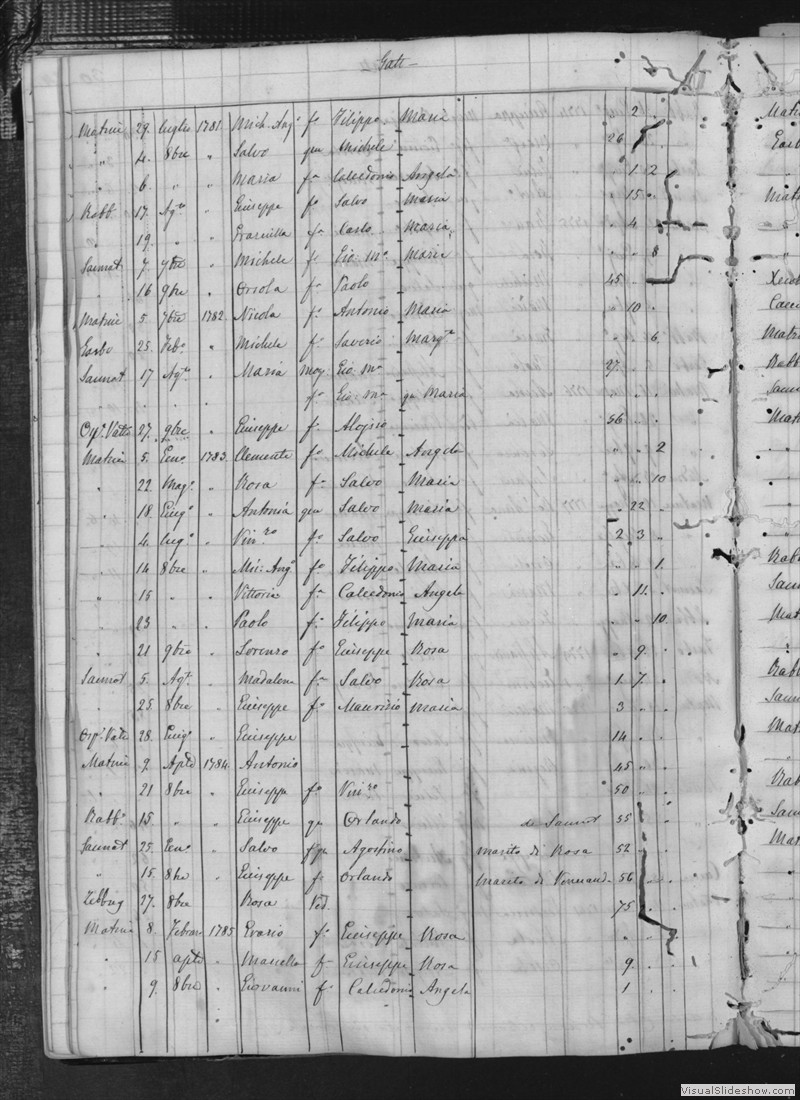 Gatt
Matrici 29. luglio 1781. Mich. Ang.o f.o Filippo Maria " 2 .
" 4. 8bre " Salvo qm Michele 26
" 6. " " Maria f.a Calcedonio Angela . 1 2
Rabb. 17. Ag.to " Giuseppe f.o Salvo Maria . 15 .
" 19. " . f.a Carlo Maria . 4 .
Sannat 7. 7bre " Michele f.o Gio. M.a Maria " . 8
. 16 9bre . Orsola f.a Paolo 45 .
Matrici 5. 7bre 1782. Nicola f.o Antonio Maria . 10 .
Garbo 25. Feb.o " Michele f.o Saverio Marg.ta . . 6.
Sannat 17 Ag.to . Maria mog. Gio. M.a 27. .
. . . f.a Gio. M.a qm Maria
Osp. Vitt.o 27. 9bre . Giuseppe f.o Aloisio 56 . .
Matrici 5. Gen.o 1783. Clemente f.o Michele Angela " . 2
" 22. Mag.o " Rosa f.a Salvo Maria . . 10
" 18. Giug.o " Antonia qm Salvo Maria . 22 .
" 4. lug.o " Vin.zo f.o Salvo Giuseppa 2 3 .
" 14 8bre " Mic: Ang.o f.o Filippo Maria " . 1.
" 15 " . Vittoria f.a Calcedonio Angela . 11. .
" 23 " . Paolo f.o Filippo Maria . . 10.
" 21 9bre . Lorenzo f.o Giuseppe Rosa . 9. .
Sannat 5. Ag.to . Madalena f.a Salvo Rosa 1 7. .
. 25 8bre . Giuseppe f.o Maurizio Maria 3 . .
Osp. Vitt.o 28. Giug.o . Giuseppe 14 . .
Matrici 9. Aple 1784. Antonio 45 " .
" 21 8bre . Giuseppe f.o Vin.zo 50 . .
Rabb.o 15. " . Giuseppe qm Orlando de Sannat 55 .
Sannat 25. Gen.o . Salvo Agostino marito di Rosa 52 . .
" 15. 8bre . Giuseppe f.o Orlando Marito di 56 . .
Zebbug 27. 8bre Rosa Ved. 75 .
Matrici 8. Febraro 1785 f.o Giuseppe Rosa . . .
. 15 aple . Marcello f.o Giuseppe Rosa 9. . .
. 9. 8bre . Giovanni f.o Calcedonio Angela 1 . .
VisualSlideshow.com